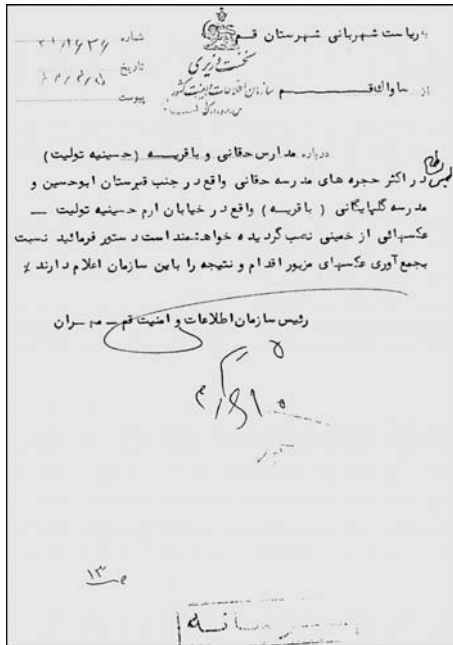 به ریاست شهربانی شهرستان قم
شماره
نخست وزیری
تاریخ
از ساواک قــم سازمان اطلاعات و امنیت کشور
پیوست
س.ا.و.ا.ک
درباره مدارس حقانی و باقریــه (حسینیه تولیت)
در اکثر حجره های مدرسه حقانی واقع در جنب قبرستان ابوحسین و
مدرسه گلپایگانی ( باقریه) واقع در خیابان ارم حسینیه تولیت ــ
عکسهائی از خمینی نصب گردیده خواهشمند است دستور فرمائید نسبت
بجمع آوری عکسهای مزبور اقدام و نتیجه را باین سازمان اعلام دارند
رئیس سازمان اطلاعات و امنیت قم ــ مهــران
۱۳